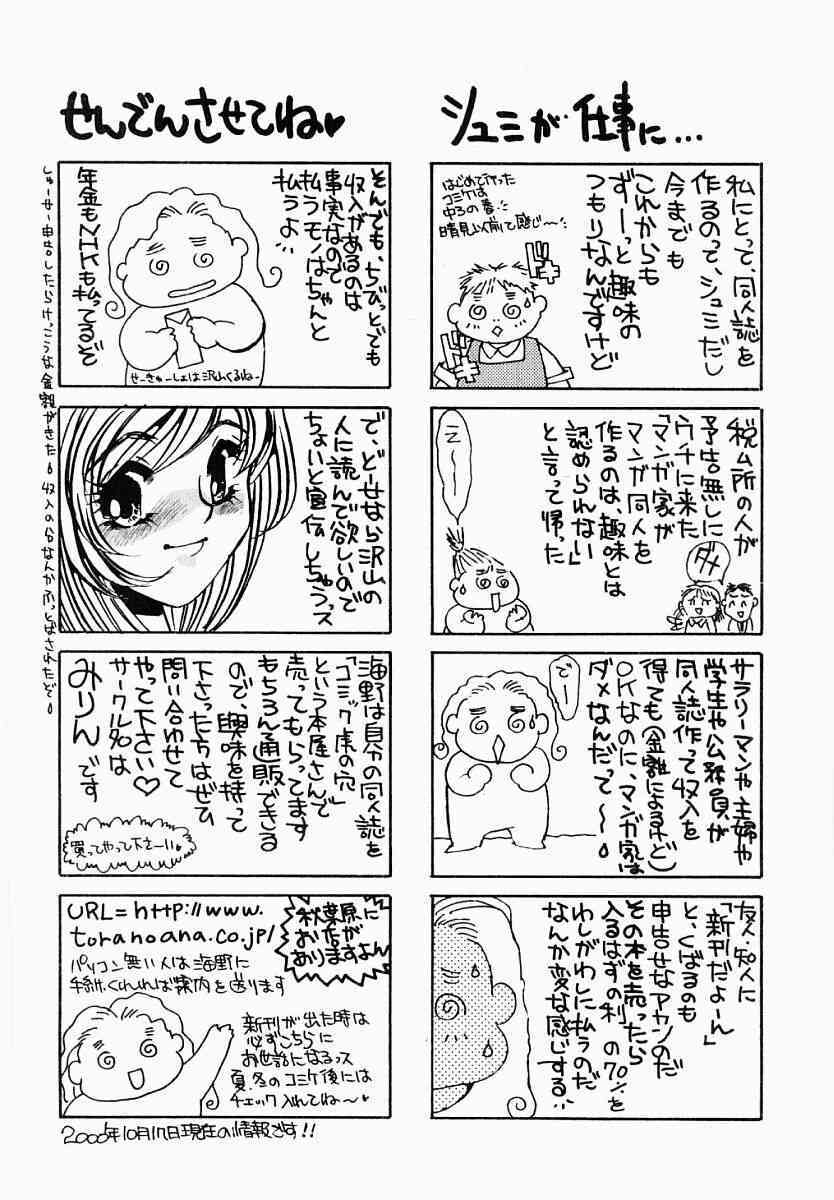 シュミが仕事に…
私にとって、同人誌を
作るのって、シュミだし
今までも
これからも
ずーっと趣味の
つもりなんですけど
はじめて行った
コミケは
中3の春
晴見以前て感じ〜
税ム所の人が
予告無しに
ウチに来た
「マンガ家が
マンガ同人を
作るのは、趣味とは
認められない」
と言って帰った
ダメ
えー〜〜
サラリーマンや主婦や
学生や公務員が
同人誌作って収入を
得ても(金額によるけど)
OKなのに、マンガ家は
ダメなんだって〜
でー
友人・知人に
「新刊だよーん」
と、くばるのも
申告せなアカンのだ
その本を売ったら
入るはずの利 の70%を
わしがわしに払うのだ
なんか変な感じする
せんでんさせてね♥
そんでも、ちびっとでも
収入があるのは
事実なので
払うモノはちゃんと
払うよ
年金もNHKも払ってるぞ
せーきゅーしょは沢山くるねー
で、どーせなら沢山の
人に読んで欲しいので
ちょいと宣伝しちゃうっス
海野は自分の同人誌を
「コミック虎の穴」
という本屋さんで
売ってもらってます
もちろん通販できる
ので、興味を持って
下さった方はぜひ
問い合わせて
やって下さい♡
サークル名は
みりんです
買ってやって下さーい
秋葉原に
お店が
ありますよん
URL=http://www.
toranoana.co.jp/
パソコン無い人は海野に
手紙くれれば案内を送ります
新刊が出た時は
必ずこちらに
お世話になるっス
夏、冬のコミケ後には
チェック入れてね〜♥
2000年10月17日現在の情報です!!
しゅーせー申告したらけっこうな金額がきた 収入の らなんかふっとばされたぞ